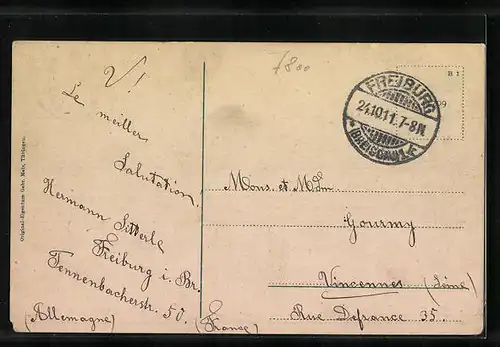 V!
7800
B 1
FREIBURG
24.10.11.7-8N.
* (BREISGAU) 1.F.
Le meiller
Salutation.
Hermann Sitterle
Freiburg i. Br.
Tennenbacherstr. 50.
(Allemagne)
Mons. et Mdm
Gourmy
Vincennes (Seine)
Rue Defrance 35.
(France)
Original-Eigentum Gebr. Metz, Tübingen.